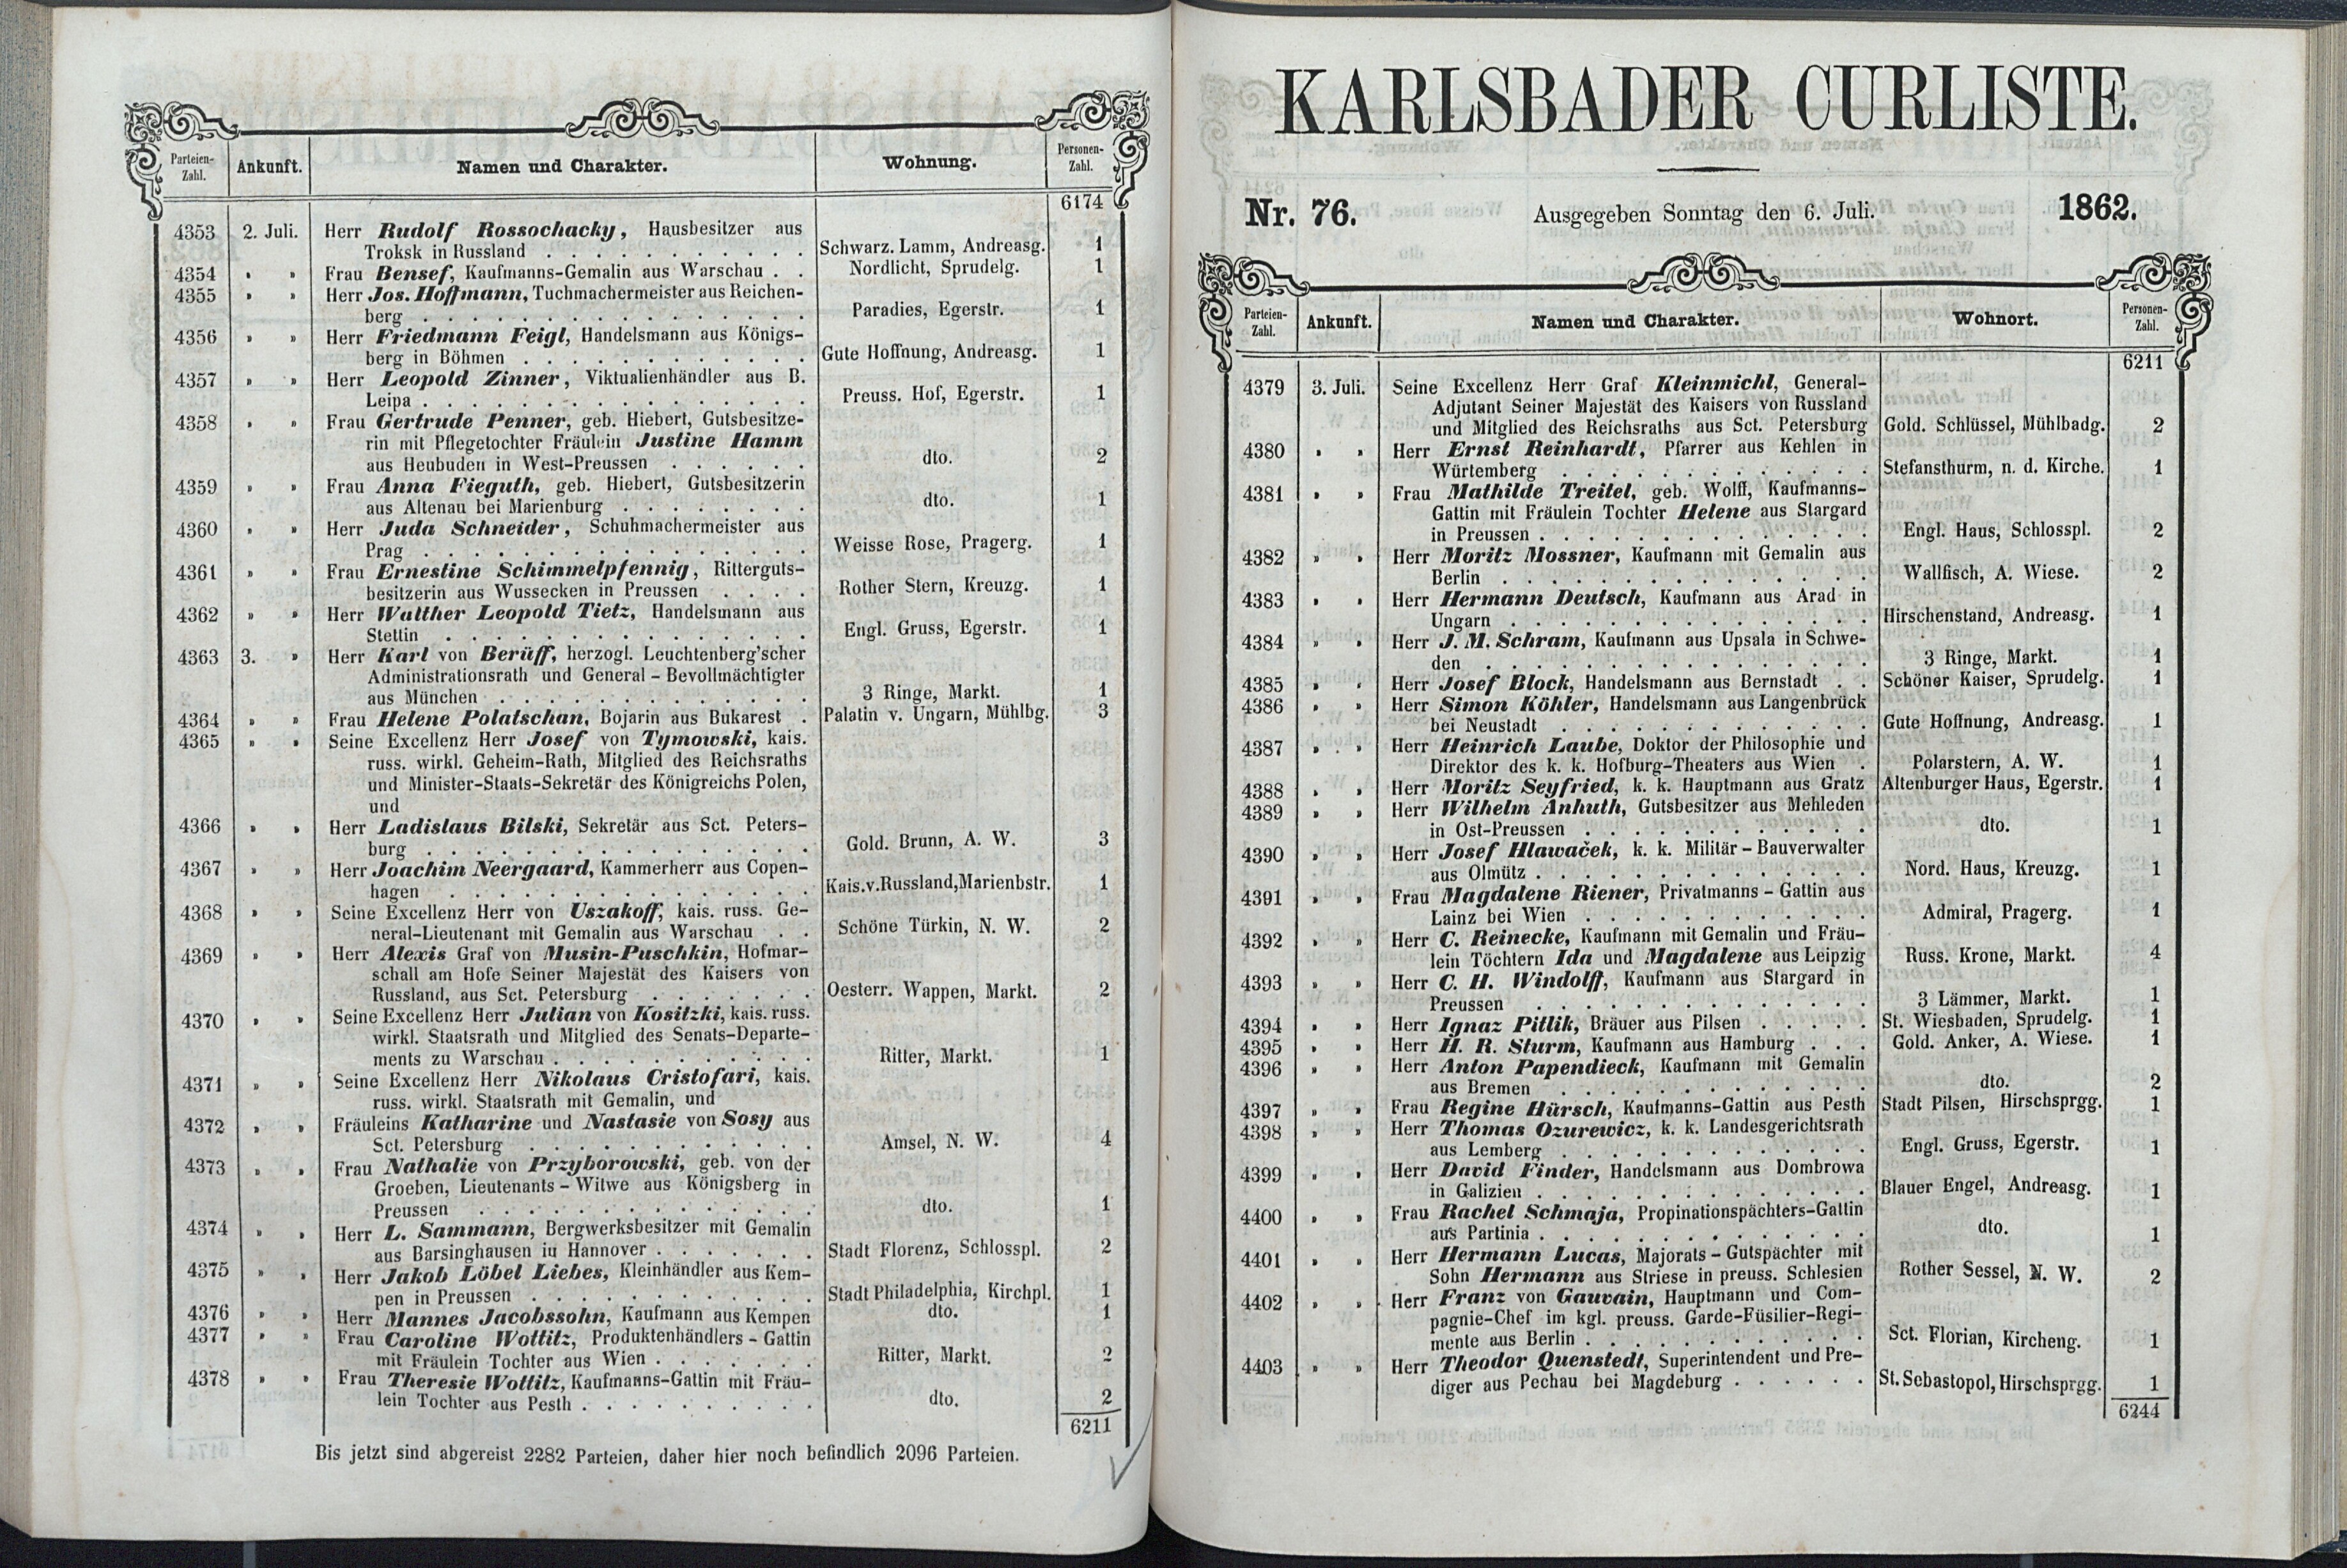 Parteien-Zahl. Ankunft. Namen und Charakter. Wohnung. Personen-Zahl.
6174
4353 2. Juli. Herr Rudolf Rossochacky, Hausbesitzer aus
Troksk in Russland . . . Schwarz. Lamm, Andreasg. 1
4354 " " Frau Bensef, Kaufmanns-Gemalin aus Warschau . . Nordlicht, Sprudelg. 1
4355 " " Herr Jos. Hoffmann, Tuchmachermeister aus Reichen-
berg . . . Paradies, Egerstr. 1
4356 " " Herr Friedmann Feigl, Handelsmann aus Königs-
berg in Böhmen . . . Gute Hoffnung, Andreasg. 1
4357 " " Herr Leopold Zinner, Viktualienhändler aus B.
Leipa . . . Preuss. Hof, Egerstr. 1
4358 " " Frau Gertrude Penner, geb. Hiebert, Gutsbesitze-
rin mit Pflegetochter Fräulein Justine Hamm
aus Heubuden in West-Preussen . . . dto. 2
4359 " " Frau Anna Fieguth, geb. Hiebert, Gutsbesitzerin
aus Altenau bei Marienburg . . . dto. 1
4360 " " Herr Juda Schneider, Schuhmachermeister aus
Prag . . . Weisse Rose, Pragerg. 1
4361 " " Frau Ernestine Schimmelpfennig, Ritterguts-
besitzerin aus Wussecken in Preussen . . . Rother Stern, Kreuzg. 1
4362 " " Herr Walther Leopold Tietz, Handelsmann aus
Stettin . . . Engl. Gruss, Egerstr. 1
4363 3. " Herr Karl von Berüff, herzogl. Leuchtenberg'scher
Administrationsrath und General-Bevollmächtigter
aus München . . . 3 Ringe, Markt. 1
4364 " " Frau Helene Polatschan, Bojarin aus Bukarest . Palatin v. Ungarn, Mühlbg. 3
4365 " " Seine Excellenz Herr Josef von Tymowski, kais.
russ. wirkl. Geheim-Rath, Mitglied des Reichsraths
und Minister-Staats-Sekretär des Königreichs Polen,
und
4366 " " Herr Ladislaus Bilski, Sekretär aus Sct. Peters-
burg . . . Gold. Brunn, A. W. 3
4367 " " Herr Joachim Neergaard, Kammerherr aus Copen-
hagen . . . Kais.v.Russland,Marienbstr. 1
4368 " " Seine Excellenz Herr von Uszakoff, kais. russ. Ge-
neral-Lieutenant mit Gemalin aus Warschau . . Schöne Türkin, N. W. 2
4369 " " Herr Alexis Graf von Musin-Puschkin, Hofmar-
schall am Hofe Seiner Majestät des Kaisers von
Russland, aus Sct. Petersburg . . . Oesterr. Wappen, Markt. 2
4370 " " Seine Excellenz Herr Julian von Kositzki, kais. russ.
wirkl. Staatsrath und Mitglied des Senats-Departe-
ments zu Warschau . . . Ritter, Markt. 1
4371 " " Seine Excellenz Herr Nikolaus Cristofari, kais.
russ. wirkl. Staatsrath mit Gemalin, und
4372 " " Fräuleins Katharine und Nastasie von Sosy aus
Sct. Petersburg . . . Amsel, N. W. 4
4373 " " Frau Nathalie von Przyborowski, geb. von der
Groeben, Lieutenants-Witwe aus Königsberg in
Preussen . . . dto. 1
4374 " " Herr L. Sammann, Bergwerksbesitzer mit Gemalin
aus Barsinghausen in Hannover . . . Stadt Florenz, Schlosspl. 2
4375 " " Herr Jakob Löbel Liebes, Kleinhändler aus Kem-
pen in Preussen . . . Stadt Philadelphia, Kirchpl. 1
4376 " " Herr Mannes Jacobssohn, Kaufmann aus Kempen dto. 1
4377 " " Frau Caroline Wottitz, Produktenhändlers-Gattin
mit Fräulein Tochter aus Wien . . . Ritter, Markt. 2
4378 " " Frau Theresie Wottitz, Kaufmanns-Gattin mit Fräu-
lein Tochter aus Pesth . . . dto. 2
6211
Bis jetzt sind abgereist 2282 Parteien, daher hier noch befindlich 2096 Parteien.
KARLSBADER CURLISTE.
Nr. 76. Ausgegeben Sonntag den 6. Juli. 1862.
Parteien-Zahl. Ankunft. Namen und Charakter. Wohnort. Personen-Zahl.
6211
4379 3. Juli. Seine Excellenz Herr Graf Kleinmichl, General-
Adjutant Seiner Majestät des Kaisers von Russland
und Mitglied des Reichsraths aus Sct. Petersburg Gold. Schlüssel, Mühlbadg. 2
4380 " " Herr Ernst Reinhardt, Pfarrer aus Kehlen in
Würtemberg . . . Stefansthurm, n. d. Kirche. 1
4381 " " Frau Mathilde Treitel, geb. Wolff, Kaufmanns-
Gattin mit Fräulein Tochter Helene aus Stargard
in Preussen . . . Engl. Haus, Schlosspl. 2
4382 " " Herr Moritz Mossner, Kaufmann mit Gemalin aus
Berlin . . . Wallfisch, A. Wiese. 2
4383 " " Herr Hermann Deutsch, Kaufmann aus Arad in
Ungarn . . . Hirschenstand, Andreasg. 1
4384 " " Herr J. M. Schram, Kaufmann aus Upsala in Schwe-
den . . . 3 Ringe, Markt. 1
4385 " " Herr Josef Block, Handelsmann aus Bernstadt . . Schöner Kaiser, Sprudelg. 1
4386 " " Herr Simon Köhler, Handelsmann aus Langenbrück
bei Neustadt . . . Gute Hoffnung, Andreasg. 1
4387 " " Herr Heinrich Laube, Doktor der Philosophie und
Direktor des k. k. Hofburg-Theaters aus Wien . Polarstern, A. W. 1
4388 " " Herr Moritz Seyfried, k. k. Hauptmann aus Gratz Altenburger Haus, Egerstr. 1
4389 " " Herr Wilhelm Anhuth, Gutsbesitzer aus Mehleden
in Ost-Preussen . . . dto. 1
4390 " " Herr Josef Hlawaček, k. k. Militär-Bauverwalter
aus Olmütz . . . Nord. Haus, Kreuzg. 1
4391 " " Frau Magdalene Riener, Privatmanns-Gattin aus
Lainz bei Wien . . . Admiral, Pragerg. 1
4392 " " Herr C. Reinecke, Kaufmann mit Gemalin und Fräu-
lein Töchtern Ida und Magdalene aus Leipzig Russ. Krone, Markt. 4
4393 " " Herr C. H. Windolff, Kaufmann aus Stargard in
Preussen . . . 3 Lämmer, Markt. 1
4394 " " Herr Ignaz Pitlik, Bräuer aus Pilsen . . . St. Wiesbaden, Sprudelg. 1
4395 " " Herr H. R. Sturm, Kaufmann aus Hamburg . . . Gold. Anker, A. Wiese. 1
4396 " " Herr Anton Papendieck, Kaufmann mit Gemalin
aus Bremen . . . dto. 2
4397 " " Frau Regine Hürsch, Kaufmanns-Gattin aus Pesth Stadt Pilsen, Hirschsprgg. 1
4398 " " Herr Thomas Ozurewicz, k. k. Landesgerichtsrath
aus Lemberg . . . Engl. Gruss, Egerstr. 1
4399 " " Herr David Finder, Handelsmann aus Dombrowa
in Galizien . . . Blauer Engel, Andreasg. 1
4400 " " Frau Rachel Schmaja, Propinationspächters-Gattin
aus Partinia . . . dto. 1
4401 " " Herr Hermann Lucas, Majorats-Gutspächter mit
Sohn Hermann aus Striese in preuss. Schlesien Rother Sessel, N. W. 2
4402 " " Herr Franz von Gauvain, Hauptmann und Com-
pagnie-Chef im kgl. preuss. Garde-Füsilier-Regi-
mente aus Berlin . . . Sct. Florian, Kircheng. 1
4403 " " Herr Theodor Quenstedt, Superintendent und Pre-
diger aus Pechau bei Magdeburg . . . St. Sebastopol, Hirschsprgg. 1
6244